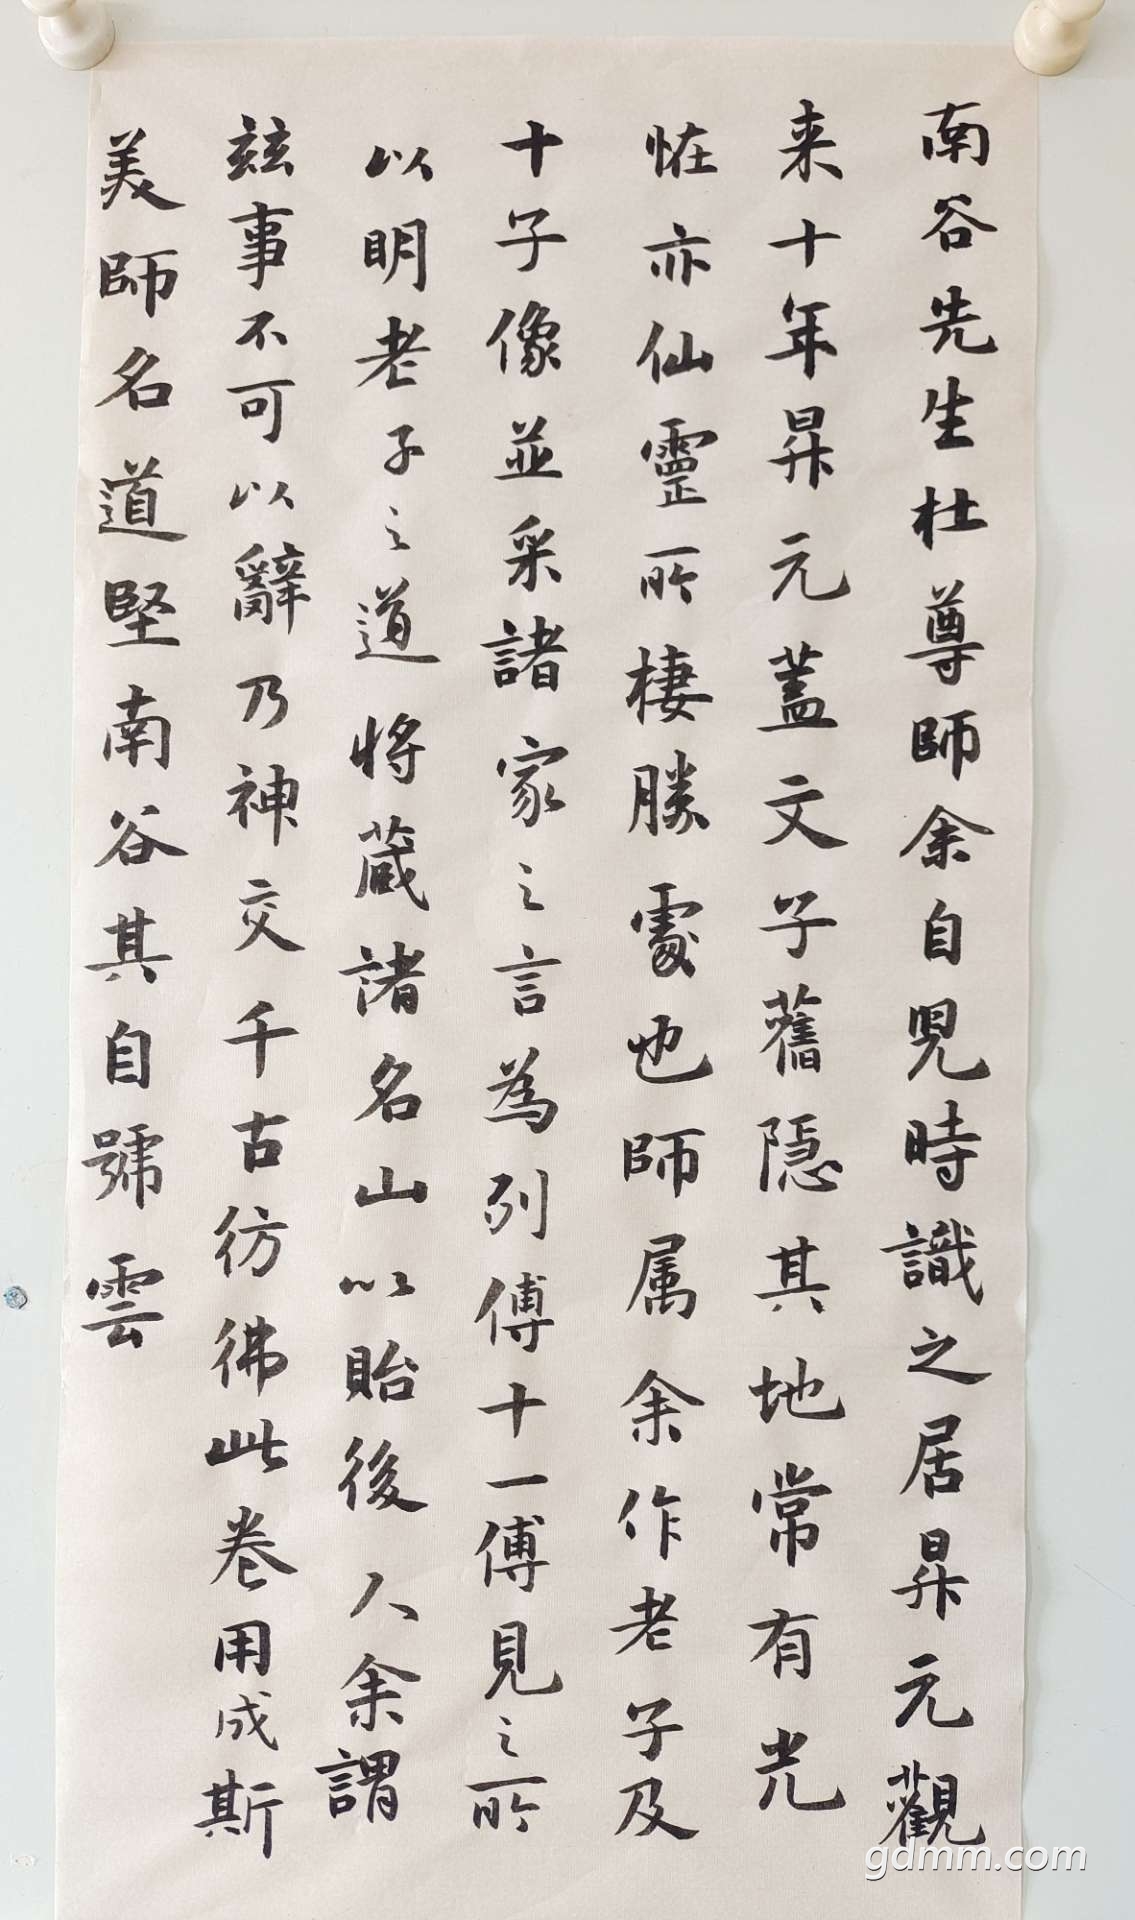 南谷先生杜尊師余自兒時識之居昇元觀
来十年昇元蓋文子舊隐其地常有光
恠亦仙靈所棲勝處也師属余作老子及
十子像並采諸家之言為列傳十一傳見之所
以明老子之道將蔵諸名山以貽後人余謂
兹事不可以辭乃神交千古彷彿此卷用成斯
美師名道堅南谷其自號雲
gdmm.com